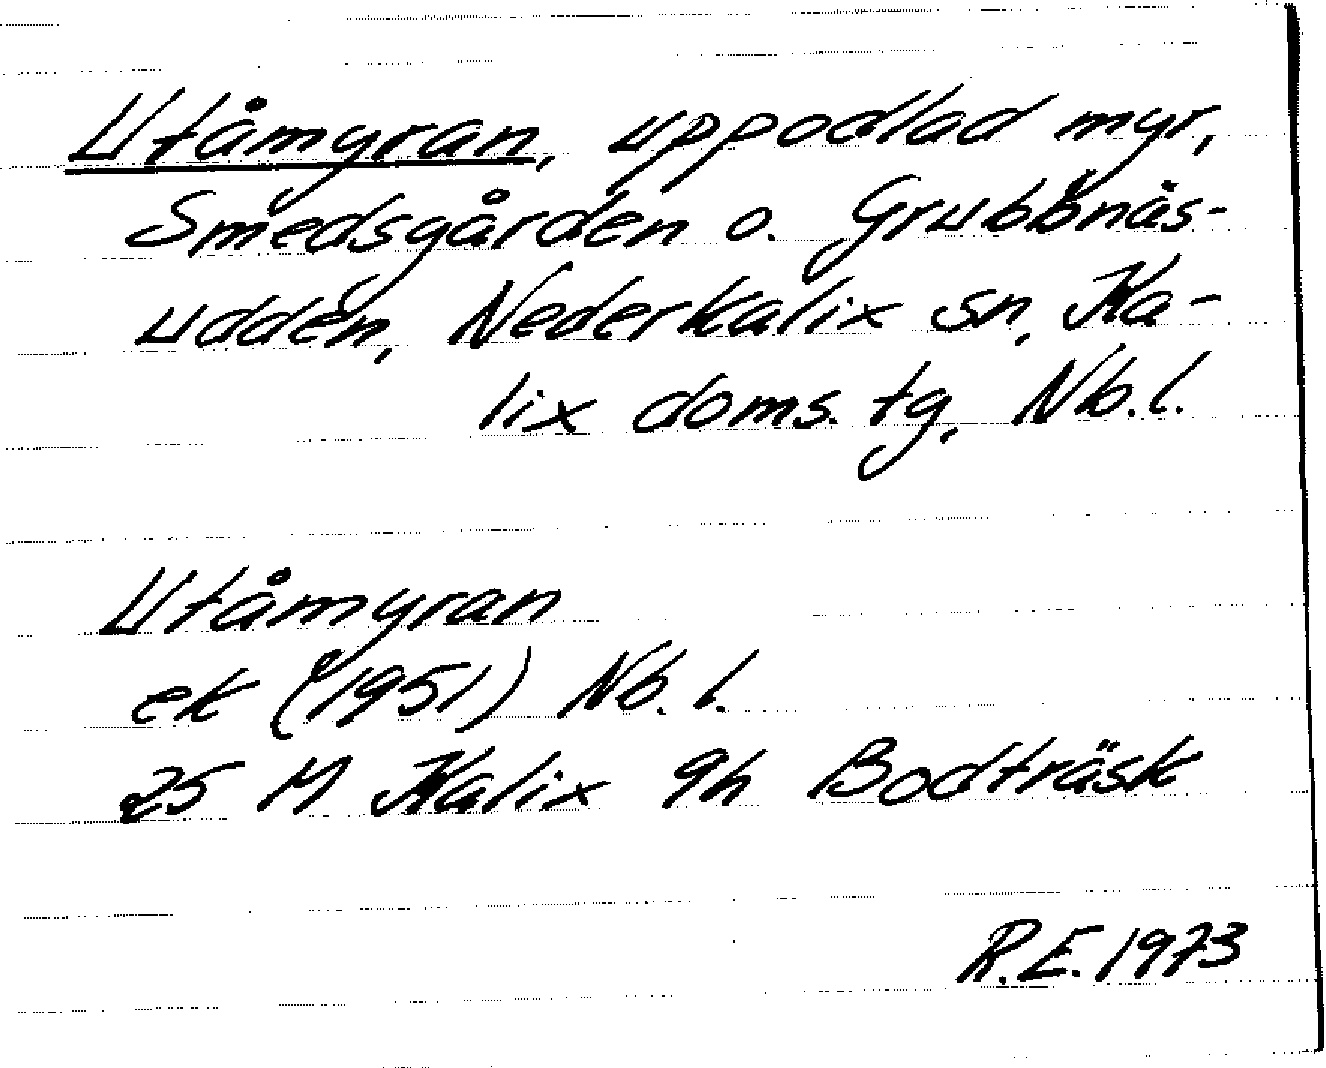 Utåmyran, uppodlad myr,
Smedsgården o. Grubbnäs-
udden, Nederkalix sn, Ka-
lix doms. tg, Nb. l.
Utåmyran
ek (1951) Nb. l.
25 M Kalix 9h Bodträsk
R.E. 1973